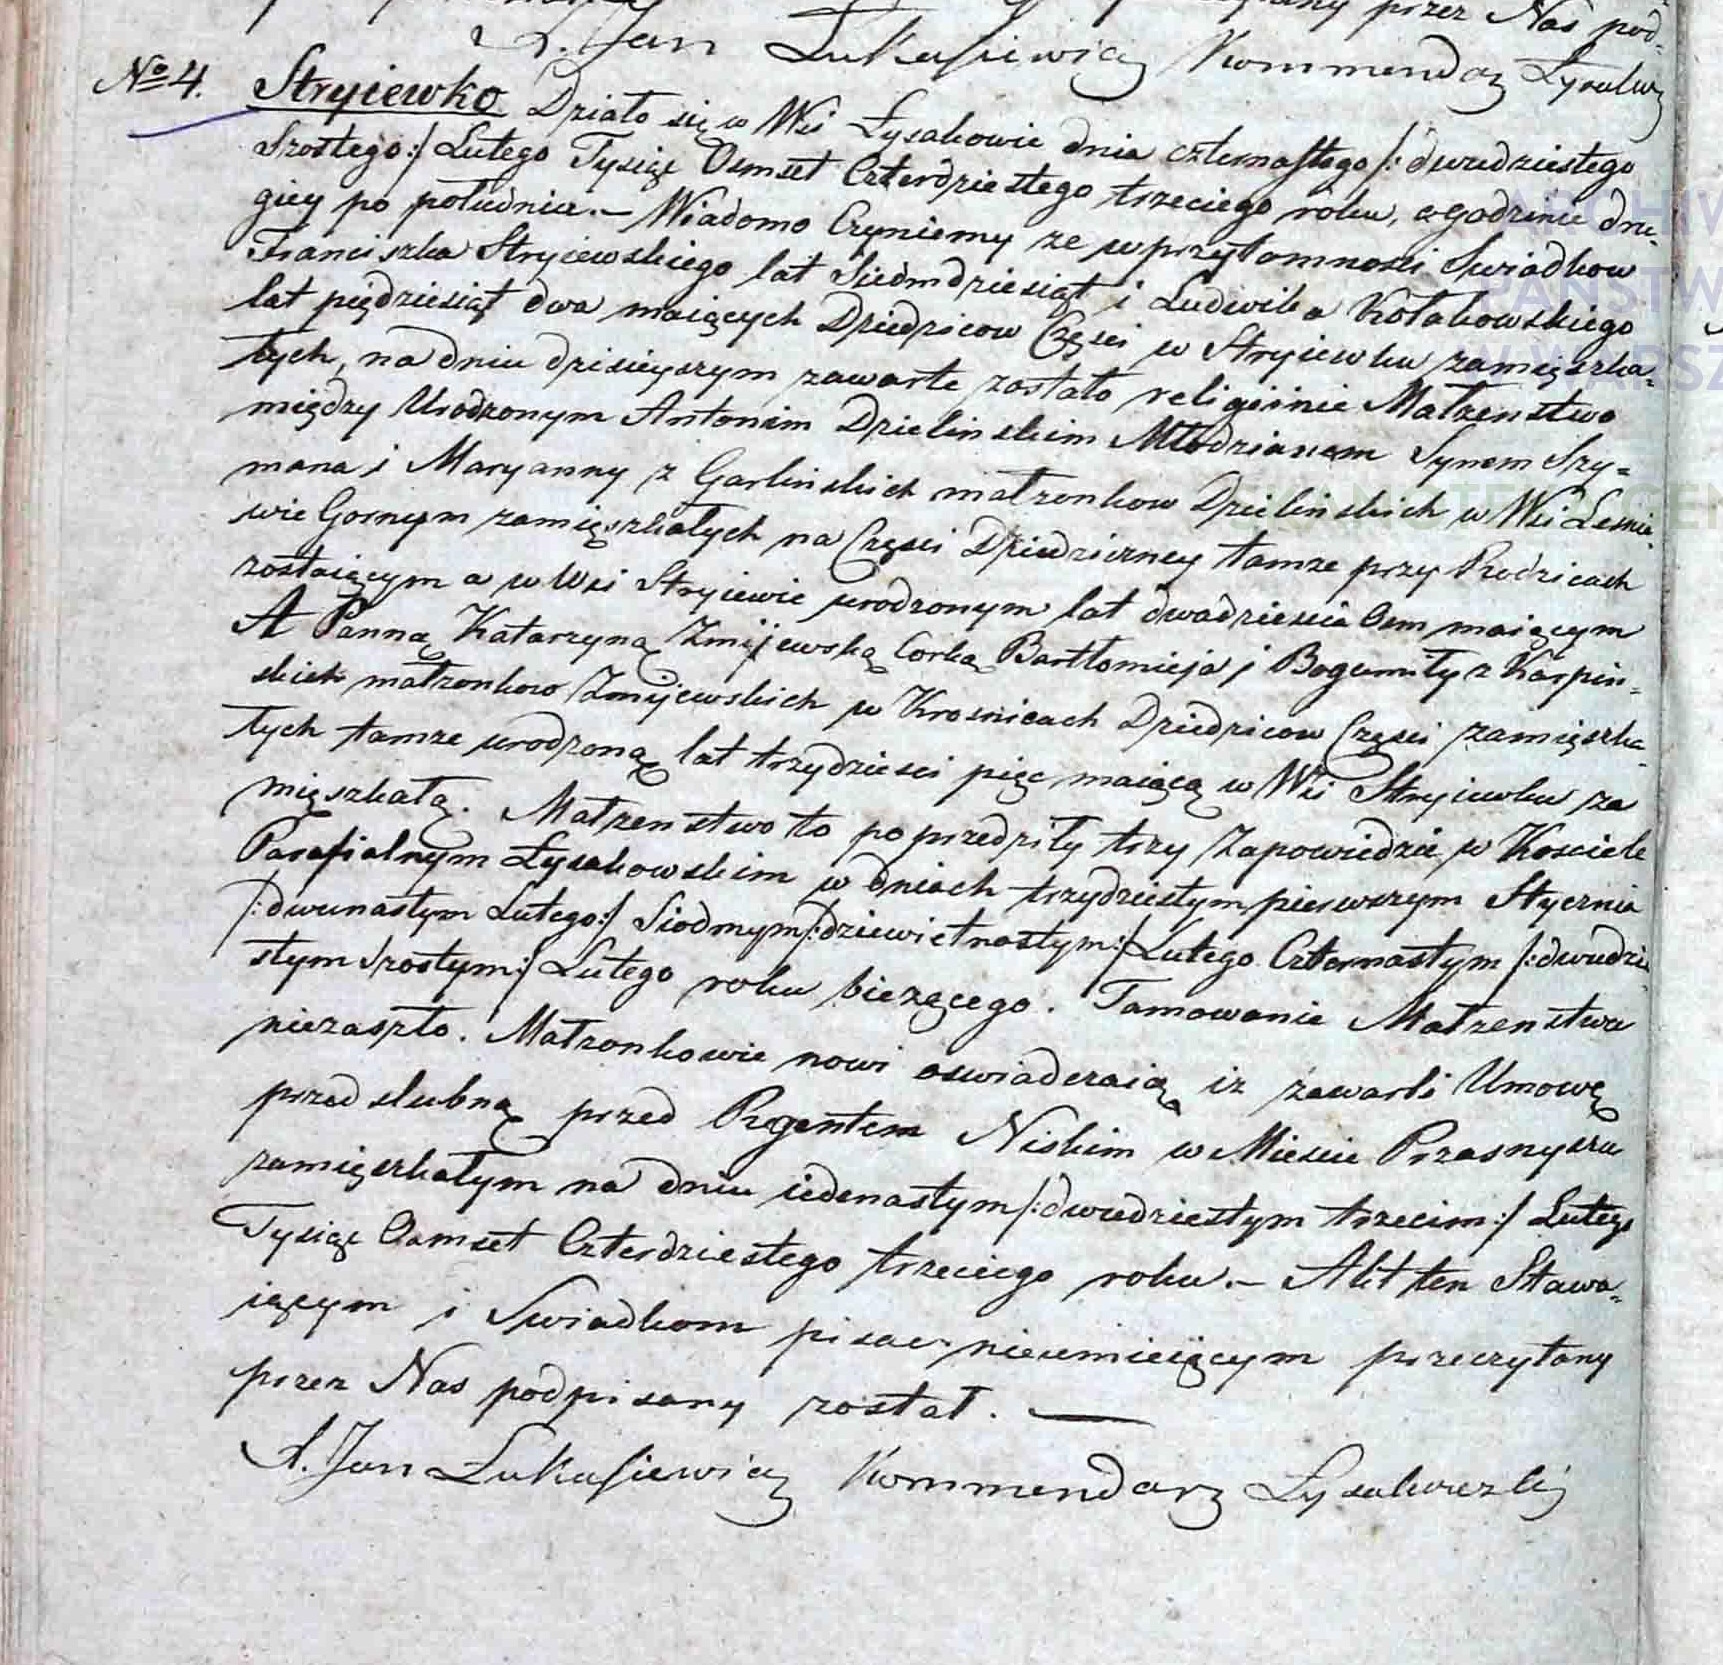 przez Nas pod-
X. Jan Łukasiewicz Kommendarz
No 4. Stryiewko Działo się w Wsi Łysakowie dnia czternastego /: dwudziestego
Szostego :/ Lutego Tysiąc Osmset Czterdziestego trzeciego roku, o godzinie dru-
giey po południu. – Wiadomo Czyniemy ze w przytomnosci Swiadkow
Franciszka Stryiewskiego lat Siedmdziesiąt i Ludwika Kołakowskiego
lat piędziesiąt dwa maiących Dziedzicow Częsci w Stryiewku zamięszka-
łych, na dniu dzisieyszym zawarte zostało religiinie Małzenstwo
między Urodzonym Antonim Dzielinskim Młodzianem Synem Szy-
mana i Maryanny z Garlinskich małzonkow Dzielinskich w Wsi Lesnie-
wie Gornym zamięszkałych na Częsci Dziedziczney tamze przy Rodzicach
zostaiącym a w Wsi Stryiewie urodzonym lat dwadziescia Osm maiącym
A Panną Katarzyną Zmijewską Corką Bartłomieja i Bogumiły z Karpin-
skich małzonkow Zmijewskich w Krosnicach Dziedzicow Częsci zamięszka-
łych tamze urodzoną lat trzydziesci pięc maiącą w Wsi Stryiewku za
mięszkałą. Małzenstwo to poprzedziły trzy Zapowiedzie w Kosciele
Parafialnym Łysakowskim w dniach trzydziestym pierwszym Stycznia
/: dwunastym Lutego :/ Siodmym /: dziewietnastym :/ Lutego Czternastym /: dwudzie-
stym Szostym :/ Lutego roku biezącego. Tamowanie Małzenstwa
niezaszło. Małzonkowie nowi oswiadczaią iz zawarli Umowę
przedslubną przed Regentem Niskim w Miescie Przasnyszu
zamięszkałym na dniu iedenastym /: dwudziestym trzecim :/ Lutego
Tysiąc Osmset Czterdziestego trzeciego roku. – Akt ten Stawa-
iącym i Swiadkom pisac nieumieiącym przeczytany
przez Nas podpisany został. —
X. Jan Łukasiewicz Kommendarz Łysakowski